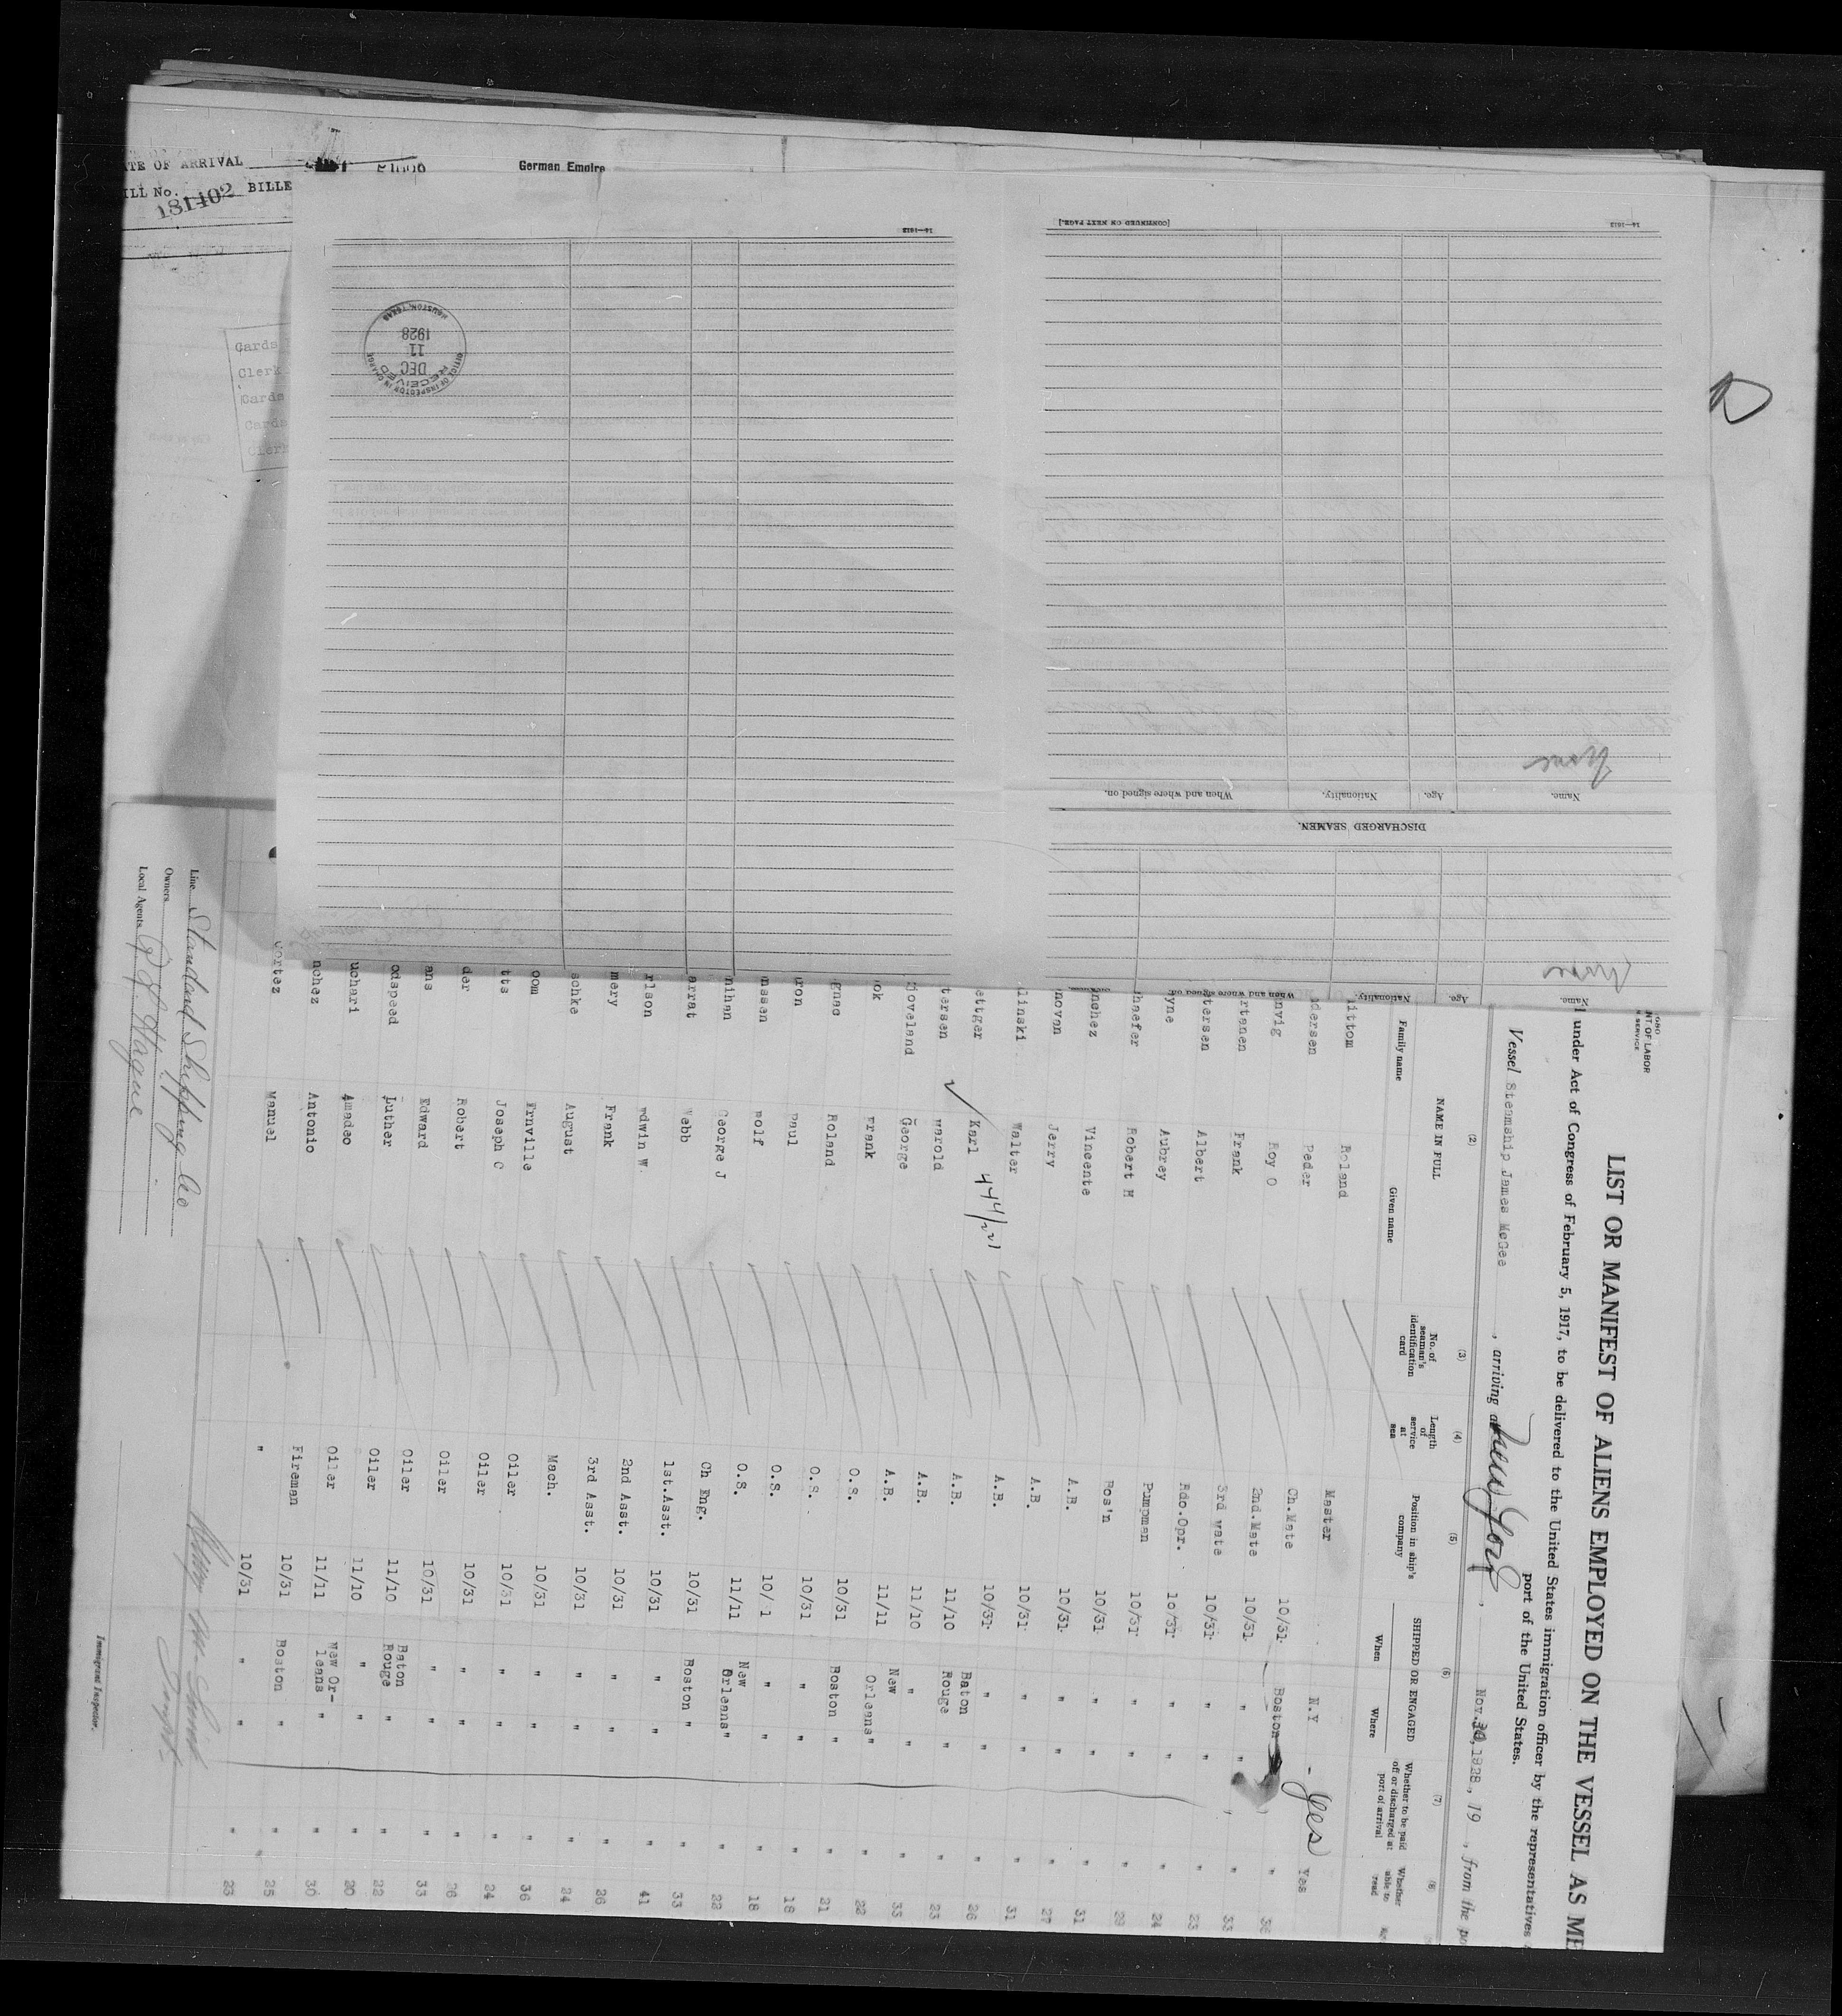 ATE OF ARRIVAL
ILL No. 181402 BILLE
German Empire
Cards
Clerk
Cards
Cards
Clerk
16—1612
RECEIVED
OFFICE OF INSPECTOR IN CHARGE
DEC
11
1928
HOUSTON, TEXAS
[CONTINUED ON NEXT PAGE.]
16—1612
None
Name. Age. Nationality. When and where signed on.
DISCHARGED SEAMEN.
None
Name. Age. Nationality. When and where signed on.
NT OF LABOR
N SERVICE
LIST OR MANIFEST OF ALIENS EMPLOYED ON THE VESSEL AS ME
under Act of Congress of February 5, 1917, to be delivered to the United States immigration officer by the representatives
port of the United States.
Vessel Steamship James McGee, arriving at New York, Nov. 1928, 19 , from the po
(2) (3) (4) (5) (6) (7) (8)
NAME IN FULL
Family name Given name
No. of seaman's identification card
Length of service at sea
Position in ship's company
SHIPPED OR ENGAGED
When Where
Whether to be paid off or discharged at port of arrival
Whether able to read
ittom Roland Master N.Y - Yes Yes
dersen Peder Ch.Mate 10/31 Boston "
nvig Roy O 2nd.Mate 10/31 " " " 33
rtanen Frank 3rd Mate 10/31 " " " 23
tersen Albert Rdo.Opr. 10/31 " " " 24
yne Aubrey Pumpman 10/31 " " "
haefer Robert M Bos'n 10/31 " " " 31
nchez Vincente A.B. 10/31 " " " 27
novan Jerry A.B. 10/31 " " " 31
linski Walter A.B. 10/31 " " " 26
ettger Karl 444/221 A.B. 11/10 Baton Rouge " " 23
tersen Harold A.B. 11/10 " " " 33
Loveland George A.B. 11/11 New Orleans " " 22
ok Frank O.S. 10/31 Boston " " 21
gnac Roland O.S. 10/31 " " " 18
uron Paul O.S. 10/ 1 " " " 18
nssen Rolf O.S. 11/11 New Orleans " " 22
nihan George J Ch Eng. 10/31 Boston " " 33
arrat Webb 1st.Asst. 10/31 " " " 41
rlson Edwin W. 2nd Asst. 10/31 " " " 26
mery Frank 3rd Asst. 10/31 " " " 24
schke August Mach. 10/31 " " " 36
oom Ernville Oiler 10/31 " " " 24
tts Joseph C Oiler 10/31 " " " 26
der Robert Oiler 10/31 " " " 33
ans Edward Oiler 11/10 Baton Rouge " " 22
odspeed Luther Oiler 11/10 " " " 20
uchari Amadeo Oiler 11/11 New Orleans " " 30
nchez Antonio Fireman 10/31 Boston " " 25
Cortez Manuel " 10/31 " " " 23
Line Standard Shipping Co
Owners
Local Agents
Immigrant Inspector.